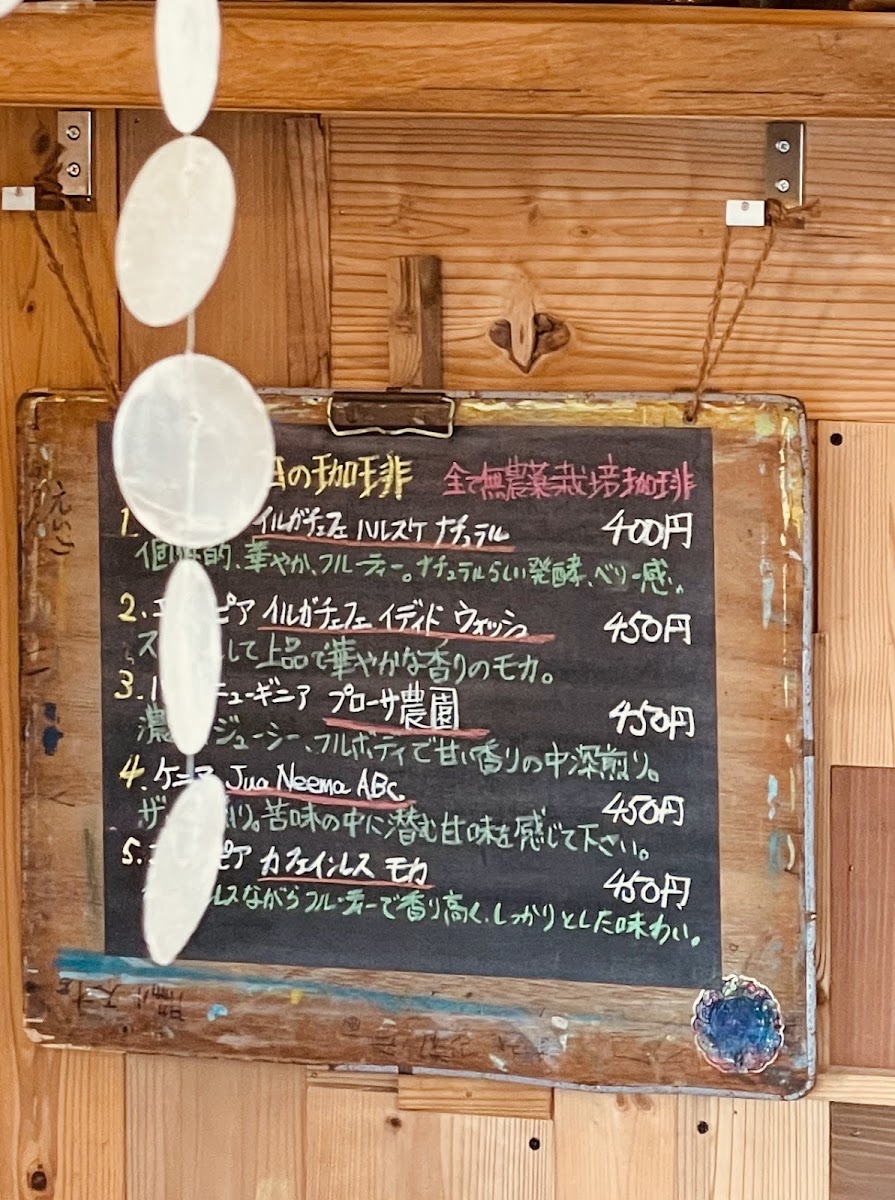 の珈琲 全て無農薬栽培珈琲
1. イルガチェフェ ハルスケ ナチュラル 400円
個性的、華やか、フルーティー。ナチュラルらしい発酵、ベリー感。
2. エ ピア イルガチェフェ イディド ウォッシュ 450円
ス して上品で華やかな香りのモカ。
3. ニューギニア プローサ農園 450円
濃 ジューシー、フルボディで甘い香りの中深煎り。
4. ケニア Jua Neema ABC. 450円
ザ 煎り。苦味の中に潜む甘味を感じて下さい。
5. ピア カフェインレス モカ 450円
レスながらフルーティーで香り高く、しっかりとした味わい。
えいご